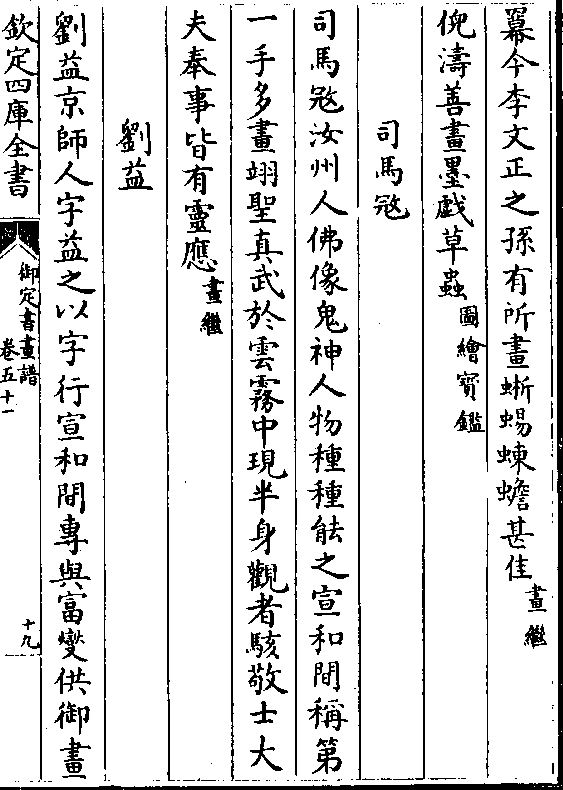 冪今李文正之孫有所畫蜥蜴蝀蟾甚佳畫繼
倪濤善畫墨戯草蟲圖繪寳鑑
司馬㓂
司馬㓂汝州人佛像鬼神人物種種能之宣和間稱第
一手多畫翊聖真武於雲霧中現半身觀者駭敬士大
夫奉事皆有靈應畫繼
劉益
劉益京師人字益之以字行宣和間專與富燮供御畫
欽定四庫全書
御定書畫譜
卷五十一
十九